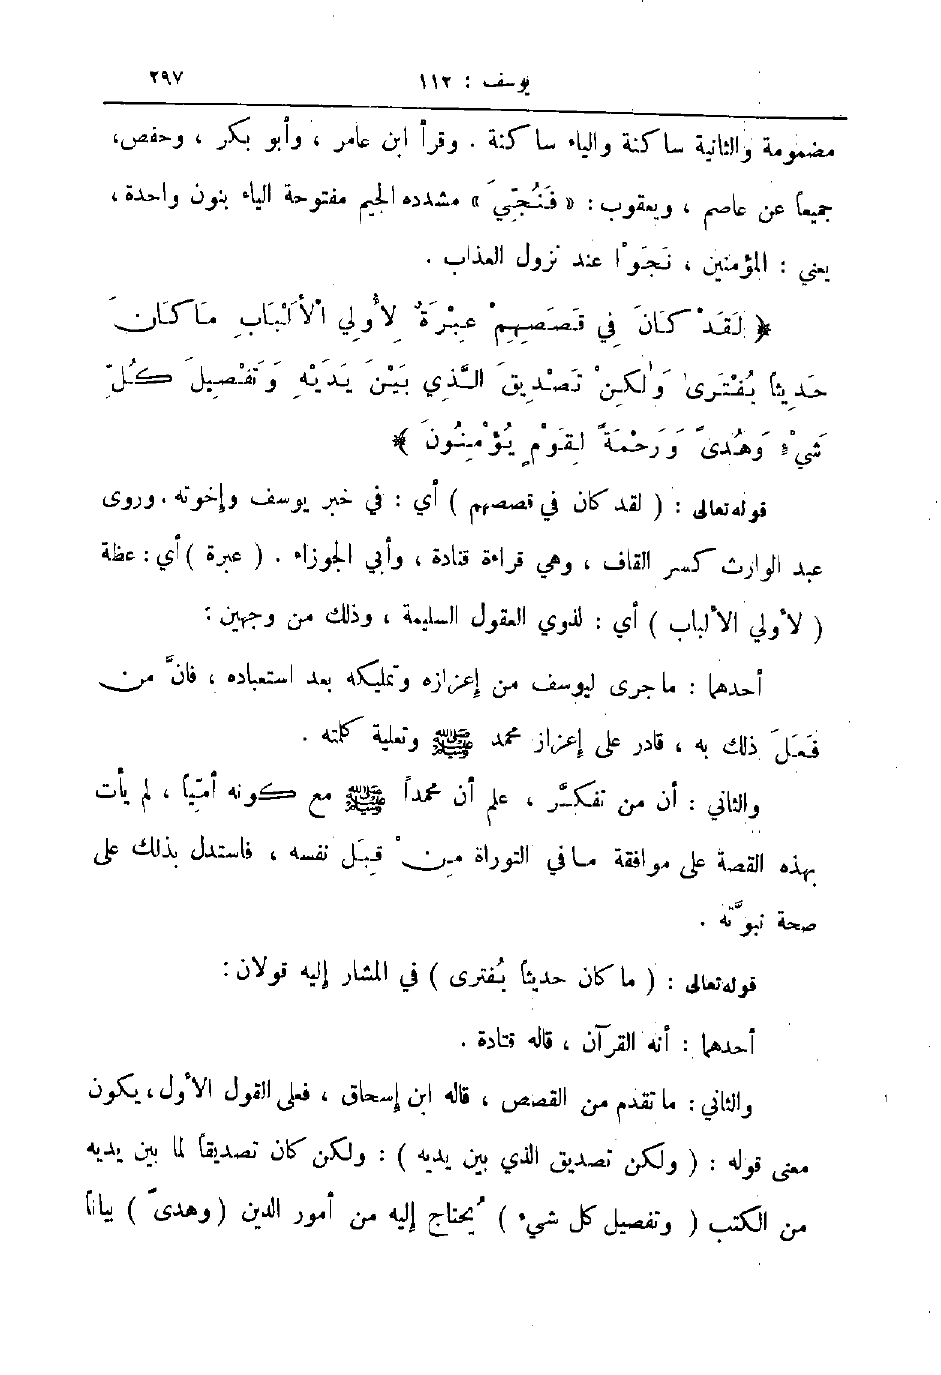 يوسف : ١١٢ ٢٩٧
مضمومة والثانية ساكنة والياء ساكنة . وقرأ ابن عامر ، وأبو بكر ، وحفص،
جميعاً عن عاصم ، ويعقوب : « فَنُجِّيَ » مشدده الجيم مفتوحة الياء بنون واحدة ،
يعني : المؤمنين ، نَجَوْا عند نزول العذاب .
﴿ لَقَدْ كَانَ فِي قَصَصِهِمْ عِبْرَةٌ لِأُولِي الْأَلْبَابِ مَا كَانَ
حَدِيثاً يُفْتَرىٰ وَلٰكِنْ تَصْدِيقَ الَّذِي بَيْنَ يَدَيْهِ وَتَفْصِيلَ كُلِّ
شَيْءٍ وَهُدىً وَرَحْمَةً لِقَوْمٍ يُؤْمِنُونَ ﴾
قوله تعالى : ( لقد كان في قصصهم ) أي : في خبر يوسف وإخوته . وروى
عبد الوارث كسر القاف ، وهي قراءة قتادة ، وأبي الجوزاء . ( عبرة ) أي : عظة
( لأولي الألباب ) أي : لذوي العقول السليمة ، وذلك من وجهين :
أحدهما : ما جرى ليوسف من إعزازه وتمليكه بعد استعباده ، فانَّ من
فَعَلَ ذلك به ، قادر على إعزاز محمد ﷺ وتعلية كلمته .
والثاني : أن من تفكَّر ، علم أن محمداً ﷺ مع كونه أمّيّاً ، لم يأت
بهذه القصة على موافقة ما في التوراة مِنْ قِبَل نفسه ، فاستدل بذلك على
صحة نبوَّته .
قوله تعالى : ( ما كان حديثاً يُفترى ) في المشار إليه قولان :
أحدهما : أنه القرآن ، قاله قتادة .
والثاني : ما تقدم من القصص ، قاله ابن إسحاق ، فعلى القول الأول ، يكون
معنى قوله : ( ولكن تصديق الذي بين يديه ) : ولكن كان تصديقاً لما بين يديه
من الكتب ( وتفصيل كل شيء ) يُحتاج إليه من أمور الدين ( وهدىً ) بياناً